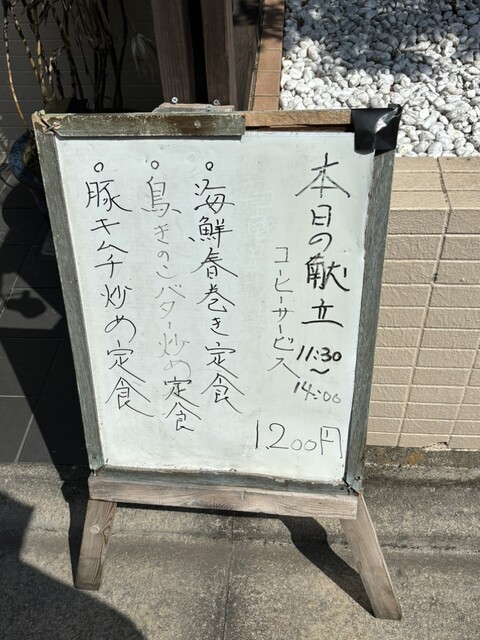 本日の献立 11:30～14:00
コーヒーサービス
1,200円
。海鮮春巻き定食
。鳥きのこバター炒め定食
。豚キムチ炒め定食